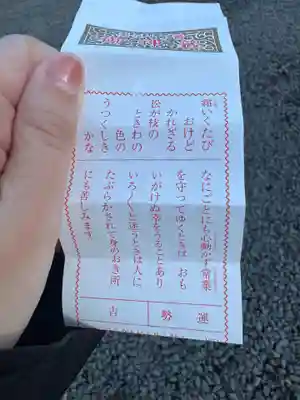 霜いくたび
おけど
かれざる
松が枝の
ときわの
色の
うつくしき
かな
なにごとにも心動かず常業
を守ってゆくときは おも
いがけぬ幸をうることあり
いろ〱と迷うときは人に
たぶらかされて身のおき所
にも苦しみます
運
勢
吉